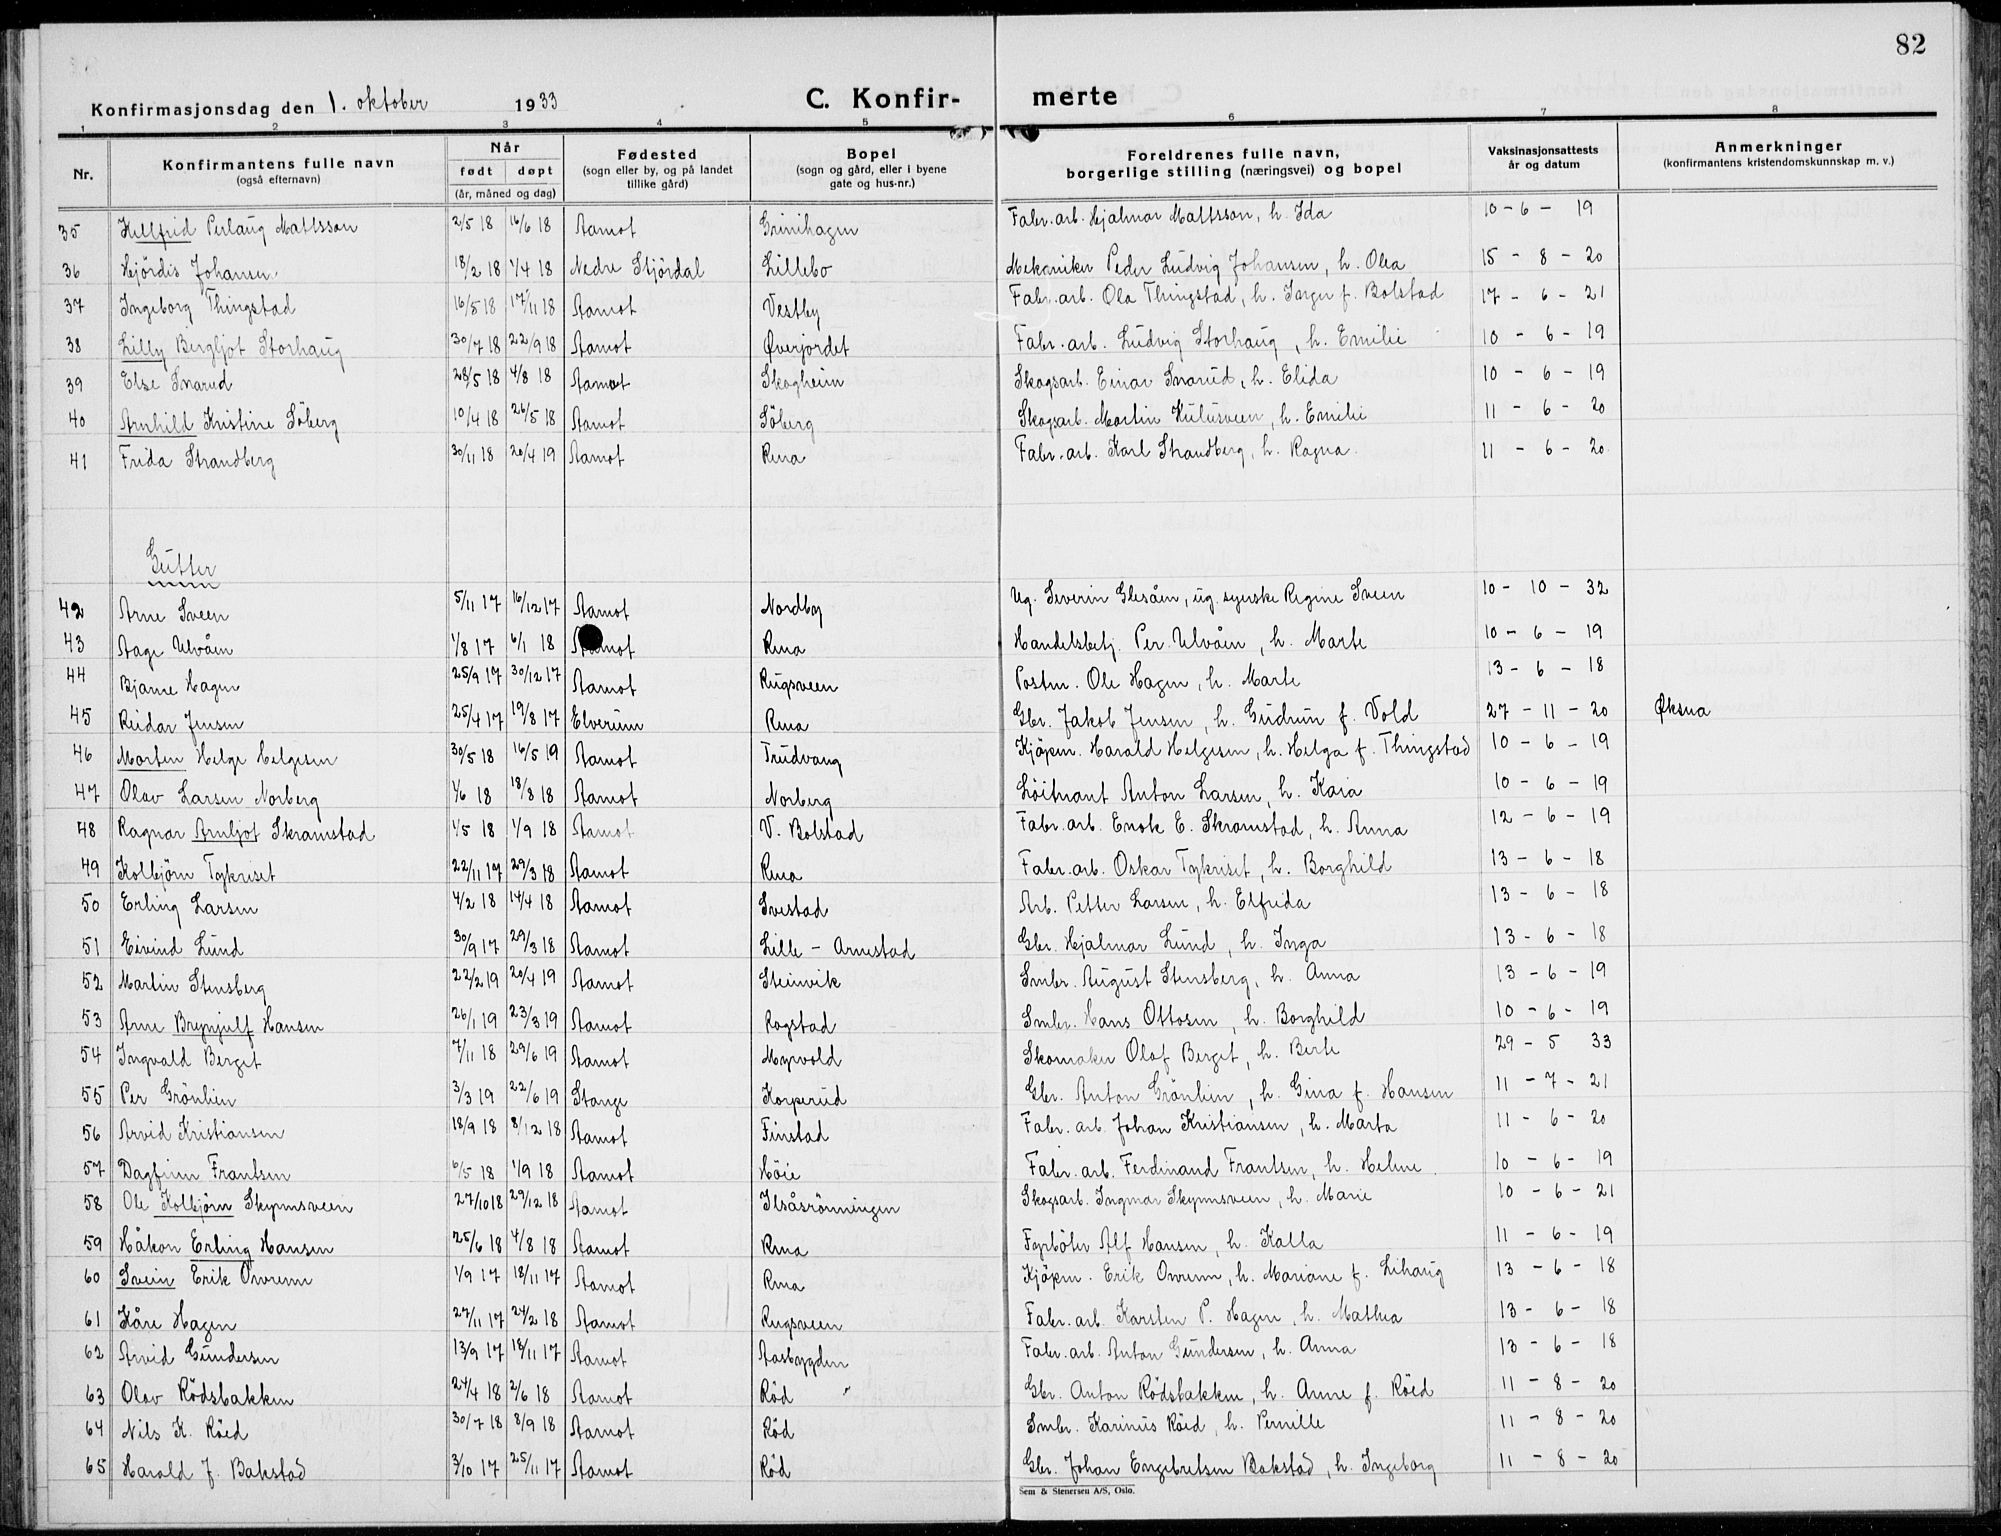 82
Konfirmasjonsdag den 1. oktober 1933 C. Konfir- merte
1 2 3 4 5 6 7 8
Nr. Konfirmantens fulle navn (også efternavn) Når født døpt (år, måned og dag) Fødested (sogn eller by, og på landet tillike gård) Bopel (sogn og gård, eller i byene gate og hus-nr.) Foreldrenes fulle navn, borgerlige stilling (næringsvei) og bopel Vaksinasjonsattests år og datum Anmerkninger (konfirmantens kristendomskunnskap m. v.)
35 Hellfrid Perlaug Mattsson 2/5 18 16/6 18 Aamot Grinihagen Fabr. arb. Hjalmar Mattsson, h. Ida 10 - 6 - 19
36 Hjördis Johansen 18/2 18 1/4 18 Nedre Stjördal Lillebo Mekaniker Peder Ludvig Johansen, h. Olea 15 - 8 - 20
37 Ingeborg Thingstad 16/5 18 17/11 18 Aamot Vestby Fabr. arb. Ola Thingstad, h. Inger f. Bolstad 17 - 6 - 21
38 Lilly Bergljot Storhaug 30/7 18 22/9 18 Aamot Øverjordet Fabr. arb. Ludvig Storhaug, h. Emilie 10 - 6 - 19
39 Else Snarud 28/5 18 4/8 18 Aamot Skogheim Skogsarb. Einar Snarud, h. Elida 10 - 6 - 19
40 Arnhild Kristine Söberg 10/4 18 26/5 18 Aamot Söberg Skogsarb. Martin Kulusveen, h. Emilie 11 - 6 - 20
41 Frida Strandberg 30/11 18 20/4 19 Aamot Rena Fabr. arb. Karl Strandberg, h. Ragna 11 - 6 - 20
Gutter
42 Arne Sveen 5/11 17 16/12 17 Aamot Nordby Ug. Severin Glesåen, ug. syerske Regine Sveen 10 - 10 - 32
43 Aage Ulvåen 1/8 17 6/1 18 Aamot Rena Handelsbetj. Per Ulvåen, h. Marte 10 - 6 - 19
44 Bjarne Hagen 25/9 17 30/12 17 Aamot Rugsveen Postm. Ole Hagen, h. Marte 13 - 6 - 18
45 Reidar Jensen 25/4 17 19/8 17 Elverum Rena Gbr. Jakob Jensen, h. Gudrun f. Vold 27 - 11 - 20 Øksna
46 Morten Helge Helgesen 30/5 18 16/5 19 Aamot Trudvang Kjöpm. Harald Helgesen, h. Helga f. Thingstad 10 - 6 - 19
47 Olav Larsen Norberg 1/6 18 18/8 18 Aamot Norberg Löitnant Anton Larsen, h. Kaia 10 - 6 - 19
48 Ragnar Arnljot Skramstad 1/5 18 1/9 18 Aamot V. Bolstad Fabr. arb. Enok E. Skramstad, h. Anna 12 - 6 - 19
49 Kolbjörn Tykriset 22/11 17 29/3 18 Aamot Rena Fabr. arb. Oskar Tykriset, h. Borghild 13 - 6 - 18
50 Erling Larsen 4/2 18 14/4 18 Aamot Svestad Arb. Petter Larsen, h. Elfrida 13 - 6 - 18
51 Eivind Lund 30/9 17 29/3 18 Aamot Lille - Arnestad Gbr. Hjalmar Lund, h. Inga 13 - 6 - 18
52 Martin Stensberg 22/2 19 20/4 19 Aamot Steinvik Smbr. August Stensberg, h. Anna 13 - 6 - 19
53 Arne Brynjulf Hansen 26/1 19 23/3 19 Aamot Rogstad Smbr. Hans Ottosen, h. Borghild 10 - 6 - 19
54 Ingvald Berget 7/11 18 29/6 19 Aamot Myrvold Skomaker Olof Berget, h. Berte 29 - 5 33
55 Per Grönlien 3/3 19 22/6 19 Stange Korperud Gbr. Anton Grönlien, h. Gina f. Hansen 11 - 7 - 21
56 Arvid Kristiansen 18/9 18 8/12 18 Aamot Finstad Fabr. arb. Johan Kristiansen, h. Marta 11 - 6 - 20
57 Dagfinn Frantsen 6/5 18 1/9 18 Aamot Höie Fabr. arb. Ferdinand Frantsen, h. Helene 10 - 6 - 19
58 Ole Kolbjörn Skynnsveen 27/10 18 29/12 18 Aamot Ilsåsrönningen Skogsarb. Ingmar Skynnsveen, h. Marie 10 - 6 - 21
59 Håkon Erling Hansen 25/6 18 4/8 18 Aamot Rena Fyrböter Alf Hansen, h. Kalla 11 - 6 - 19
60 Svein Erik Ovrenn 1/9 17 18/11 17 Aamot Rena Kjöpm. Erik Ovrenn, h. Mariane f. Lihaug 13 - 6 - 18
61 Kåre Hagen 27/11 17 24/2 18 Aamot Rugsveen Fabr. arb. Karsten P. Hagen, h. Mathea 13 - 6 - 18
62 Arvid Gundersen 13/9 17 18/11 17 Aamot Aasbygden Fabr. arb. Anton Gundersen, h. Anna 13 - 6 - 18
63 Olav Rödsbakken 24/4 18 2/6 18 Aamot Röd Gbr. Anton Rödsbakken, h. Anne f. Röed 11 - 8 - 20
64 Nils K. Röed 30/7 18 8/9 18 Aamot Röd Smbr. Karinus Röed, h. Pernille 11 - 8 - 20
65 Harald J. Bakstad 3/10 17 25/11 17 Aamot Röd Gbr. Johan Engebretsen Bakstad, h. Ingeborg 11 - 8 - 20
Sem & Stenersen A/S, Oslo.